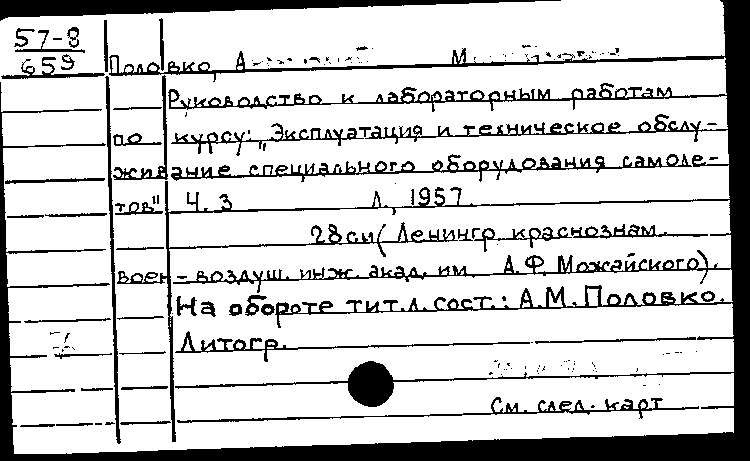 57-8
659
Половко, А М
Руководство к лабораторным работам
по курсу: „Эксплуатация и техническое обслу-
живание специального оборудования самоле-
тов" Ч. 3 Л., 1957.
28см (Ленингр. краснознам.
воен-воздуш. инж. акад. им. А.Ф. Можайского).
На обороте тит.л. сост.: А.М. Половко.
Литогр.
См. след. карт